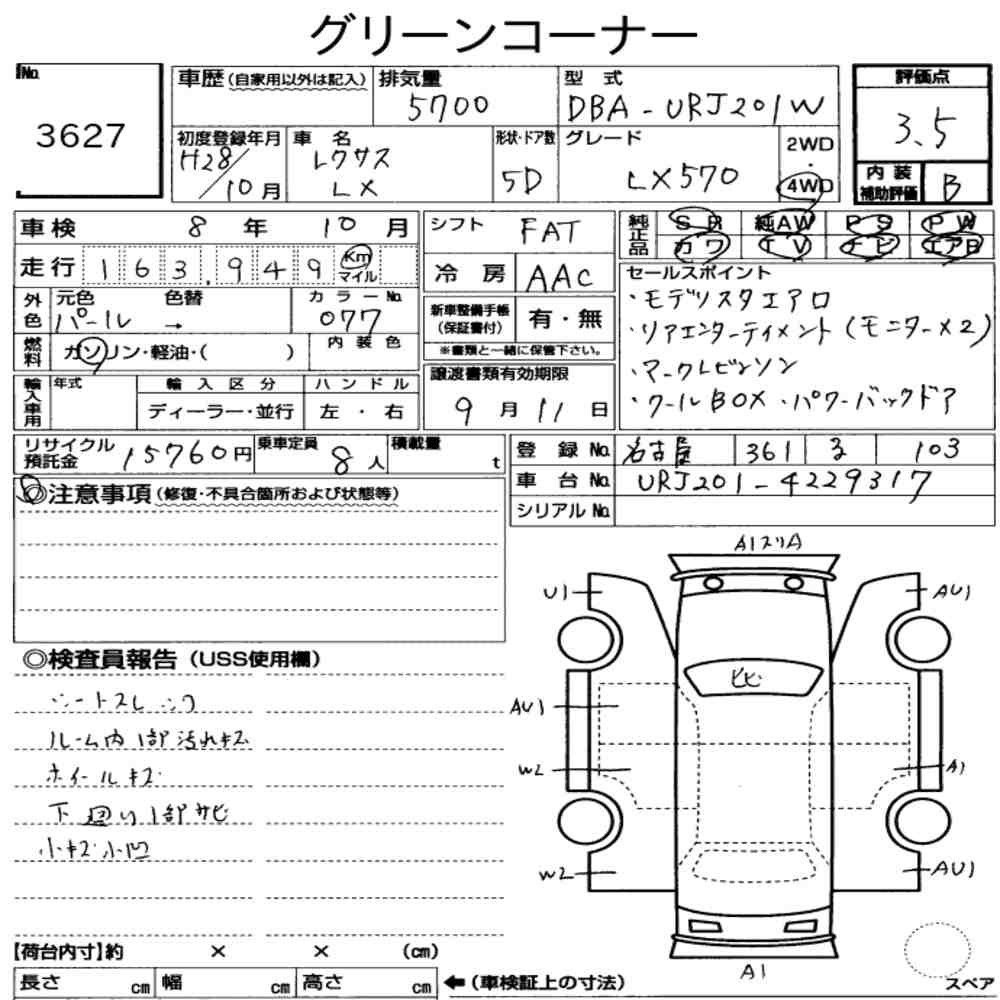 グリーンコーナー
No. 3627
車歴 (自家用以外は記入) 排気量 5700 型式 DBA-URJ201W 評価点 3.5
初度登録年月 H28/10月 車名 レクサス LX 形状・ドア数 5D グレード LX570 2WD・4WD 内装補助評価 B
車検 8年 10月 シフト FAT 純正品 SR 純AW PS PW
カワ TV ナビ エアB
走行 163,949 Km マイル 冷房 AAC
セールスポイント
・モデリスタエアロ
・リアエンターティメント(モニター×2)
・マークレビンソン
・クールBOX・パワーバックドア
外色 元色 パール → 色替 カラーNo. 077 新車整備手帳(保証書付) 有・無
燃料 ガソリン・軽油・( ) 内装色 ※書類と一緒に保管下さい。
輸入車用 年式 輸入区分 ディーラー・並行 ハンドル 左・右 譲渡書類有効期限 9月11日
リサイクル預託金 15760円 乗車定員 8人 積載量 t
登録No. 名古屋 361 る 103
車台No. URJ201-4229317
シリアルNo.
◎注意事項 (修復・不具合箇所および状態等)
◎検査員報告 (USS使用欄)
シートスレ シワ
ルーム内1部汚れキズ
ホイールキズ
下廻り1部サビ
小キズ小凹
A1スリA
U1 AU1
ヒビ
AU1
W2 A1
W2 AU1
A1
スペア
【荷台内寸】約 × × (cm)
長さ cm 幅 cm 高さ cm ←(車検証上の寸法)